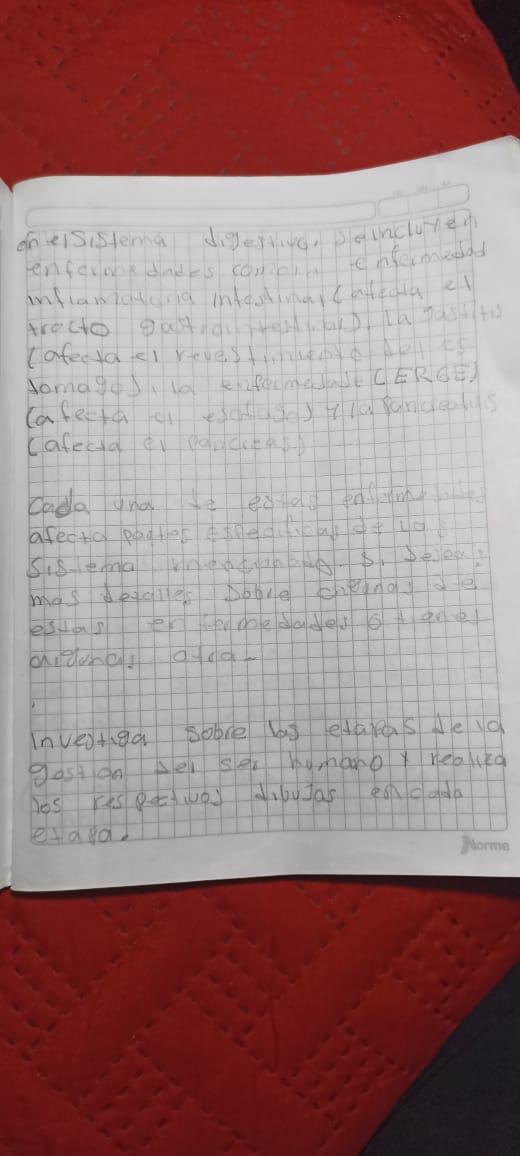 en el Sistema digestivo, se incluyen
enfermedades como la enfermedad
inflamatoria intestinal (afecta el
tracto gastrointestinal), la gastritis
(afecta el revestimiento del es
tomago), la enfermedade (ERGE)
(afecta el esofago) y la Pancreatitis
(afecta el pancreas)
Cada una de estas enfermedades
afecta partes especificas de los
Sistema mencionado. Si deseas
mas detalles sobre algunas de
estas enfermedades o tienes
otra
Investiga sobre las etapas de la
del ser humano y realiza
los respectivos dibujas en cada
etapa.
Norma